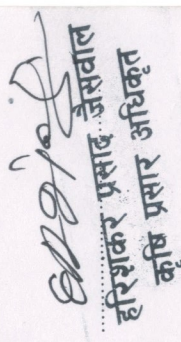 हरिशंकर प्रसाद जैसवाल
कृषि प्रसार अधिकृत